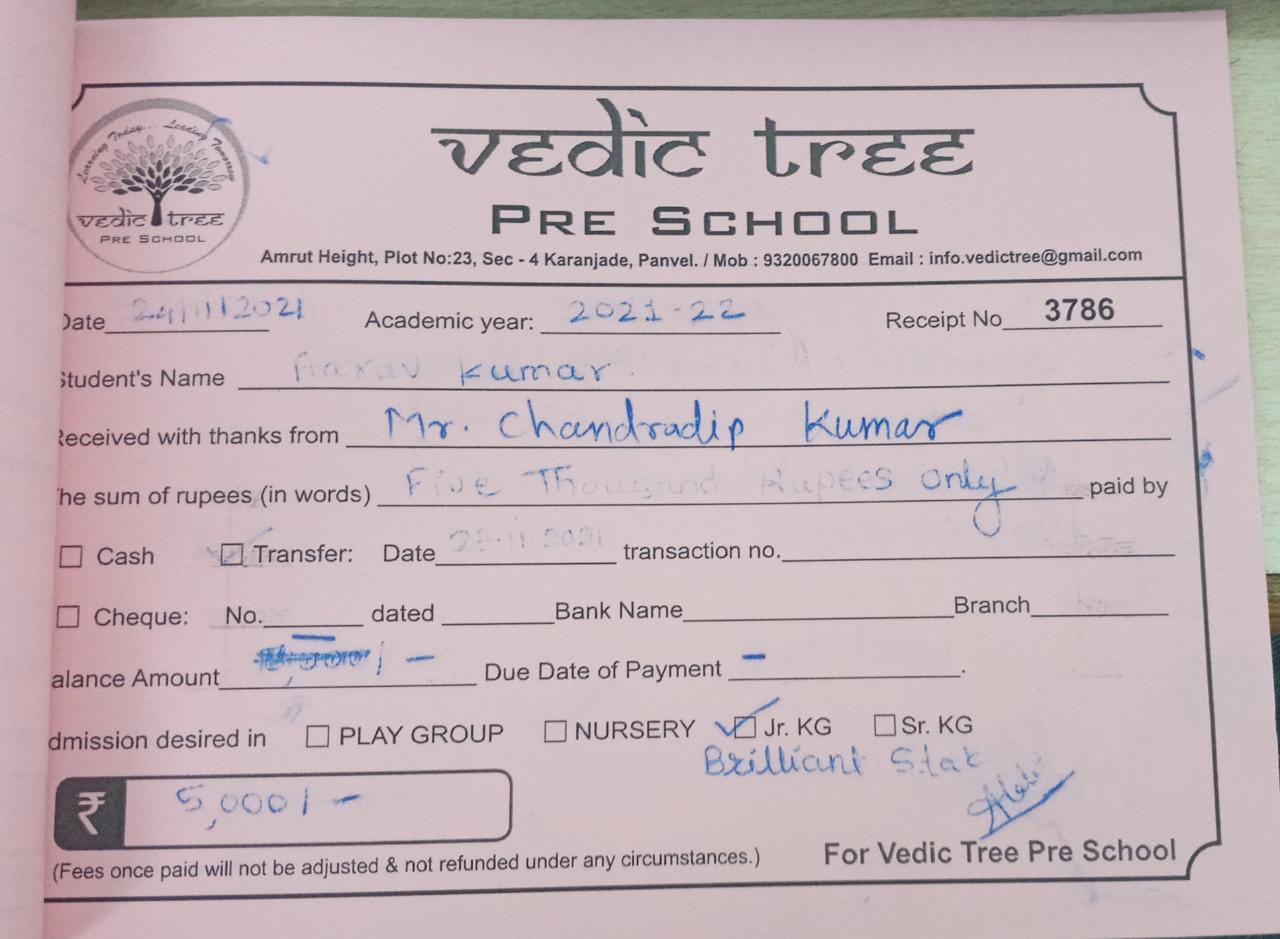 Learning Today... Leading Tomorrow
vedic tree
PRE SCHOOL
vedic tree
PRE SCHOOL
Amrut Height, Plot No:23, Sec - 4 Karanjade, Panvel. / Mob : 9320067800 Email : info.vedictree@gmail.com
Date 24/11/2021 Academic year: 2021-22 Receipt No 3786
Student's Name Aarav Kumar
Received with thanks from Mr. Chandradip Kumar
he sum of rupees (in words) Five Thousand Rupees only paid by
Cash Transfer: Date 2021 transaction no.
Cheque: No. dated Bank Name Branch
alance Amount /- Due Date of Payment -
dmission desired in PLAY GROUP NURSERY Jr. KG Sr. KG
Brilliant Star
₹ 5,000/-
(Fees once paid will not be adjusted & not refunded under any circumstances.) For Vedic Tree Pre School